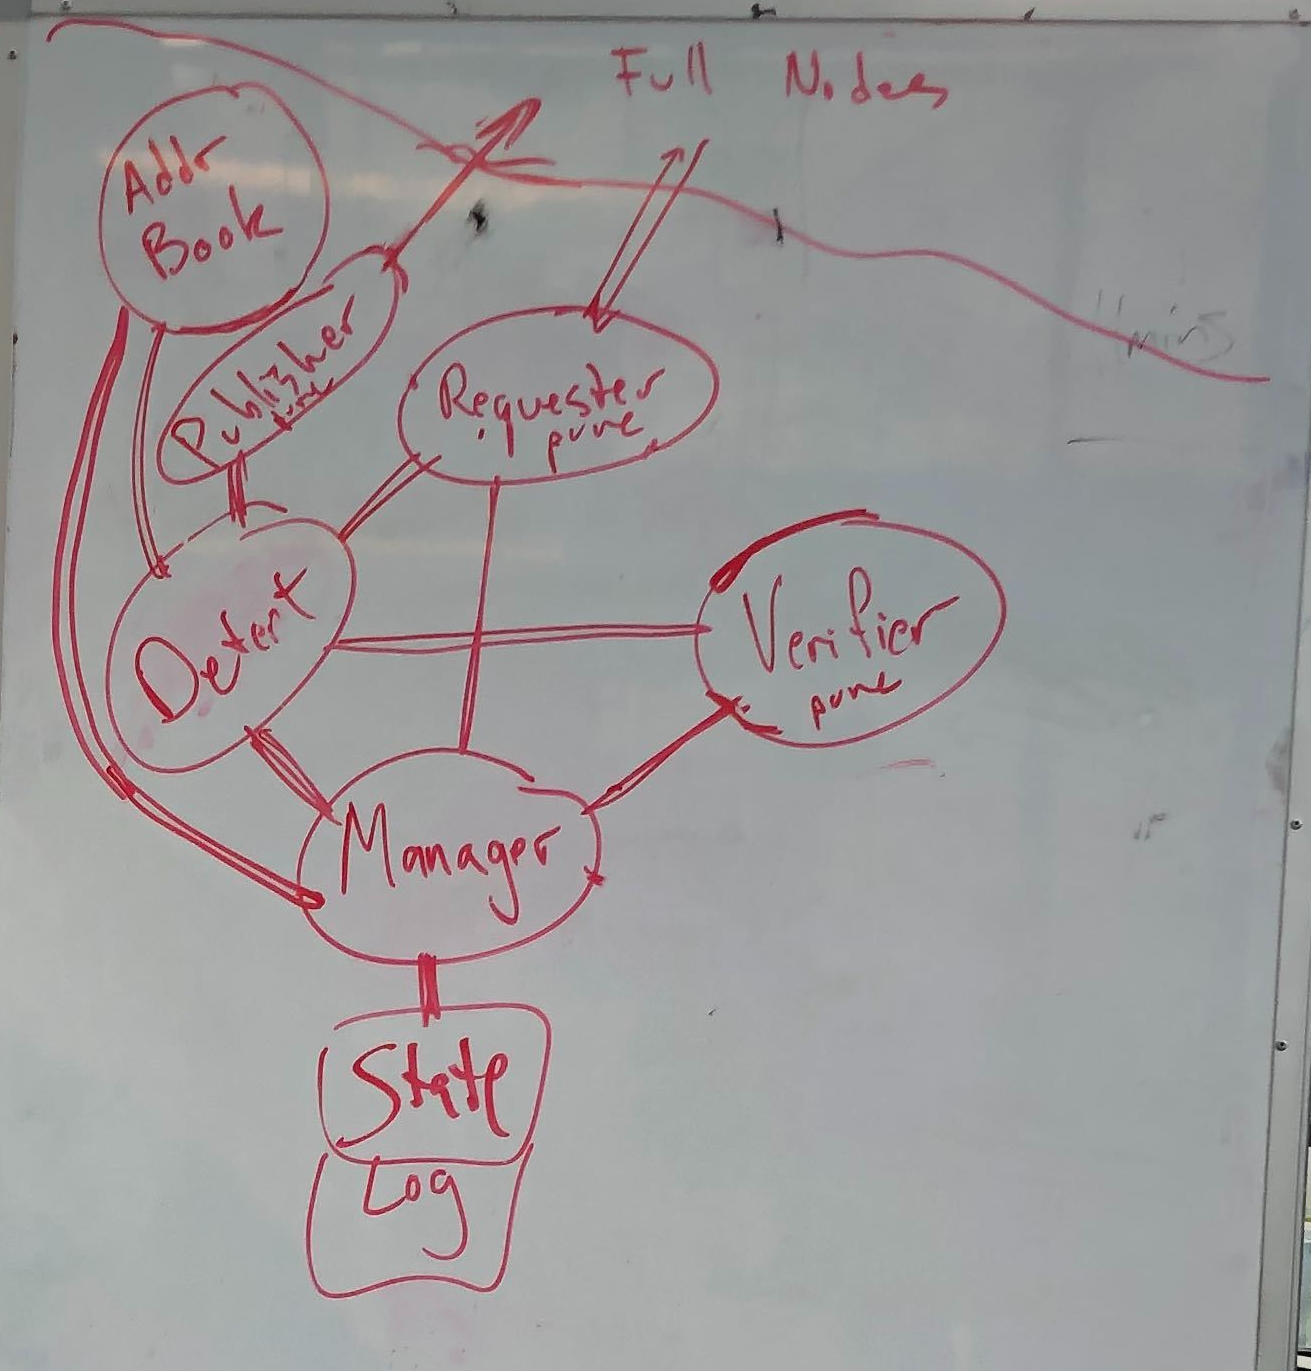 Full Nodes
Addr
Book
Publisher
Requester
pure
Detert
Verifier
pure
Manager
State
Log